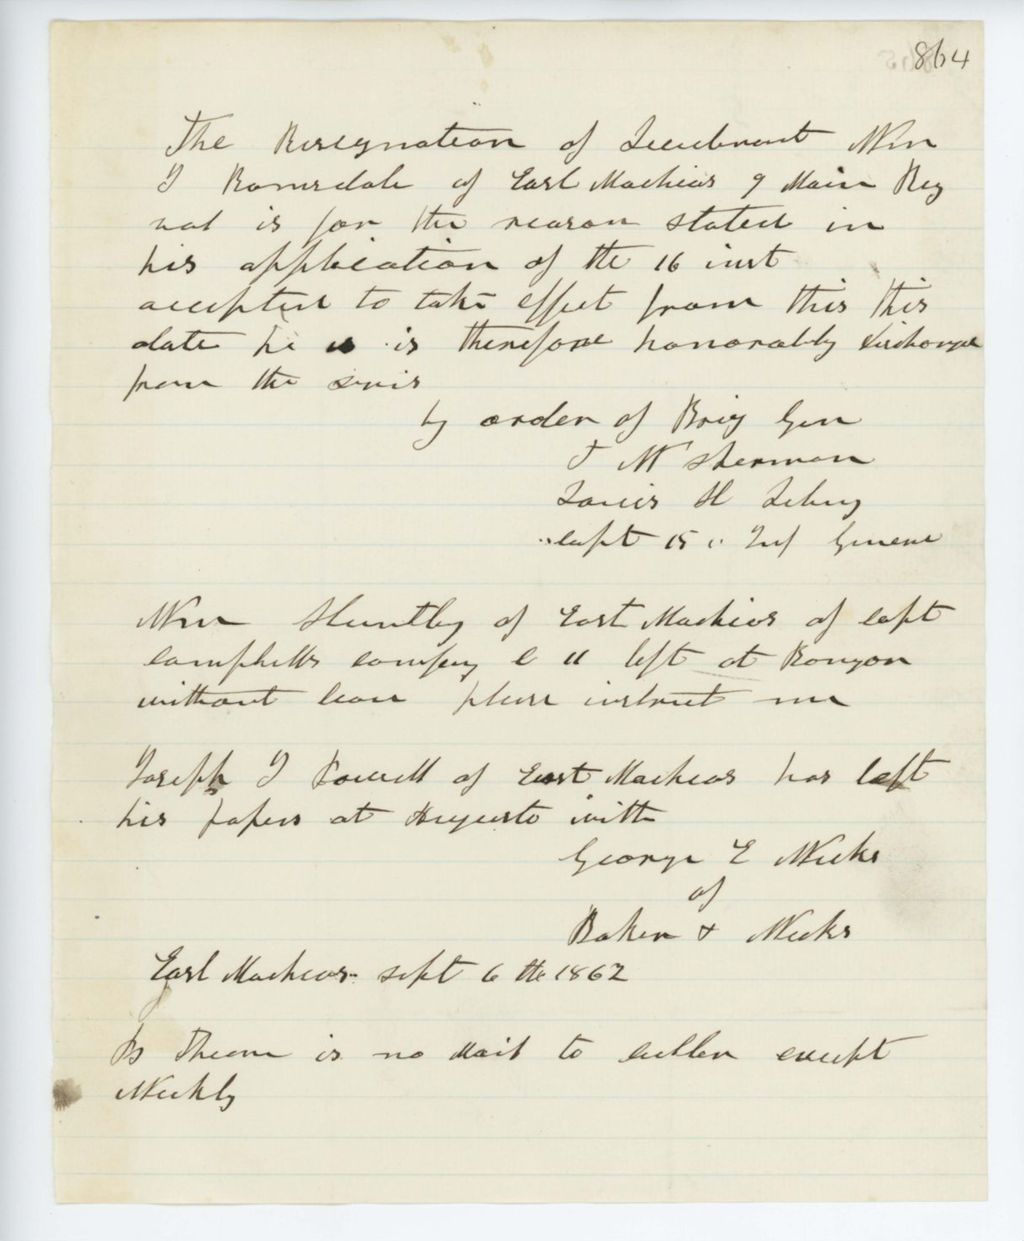 864
The Resignation of Lieutenant Wm
J Ramsdale of East Machias 9 Main Reg
is for the reason stated in
his application of the 16 inst
accepted to take effect from this this
date he is is therefore honorably discharged
from the
by order of Brig Gen
T W Sherman
H
capt 15 Inf
Wm Huntley of East Machias of capt
campbells company c 11 left at Bangor
without leave please instruct me
Joseph J of East Machias has left
his papers at Augusta with
George E Weeks
of
Baker & Weeks
East Machias sept 6 the 1862
Ps is no Mail to cutler except
Weekly